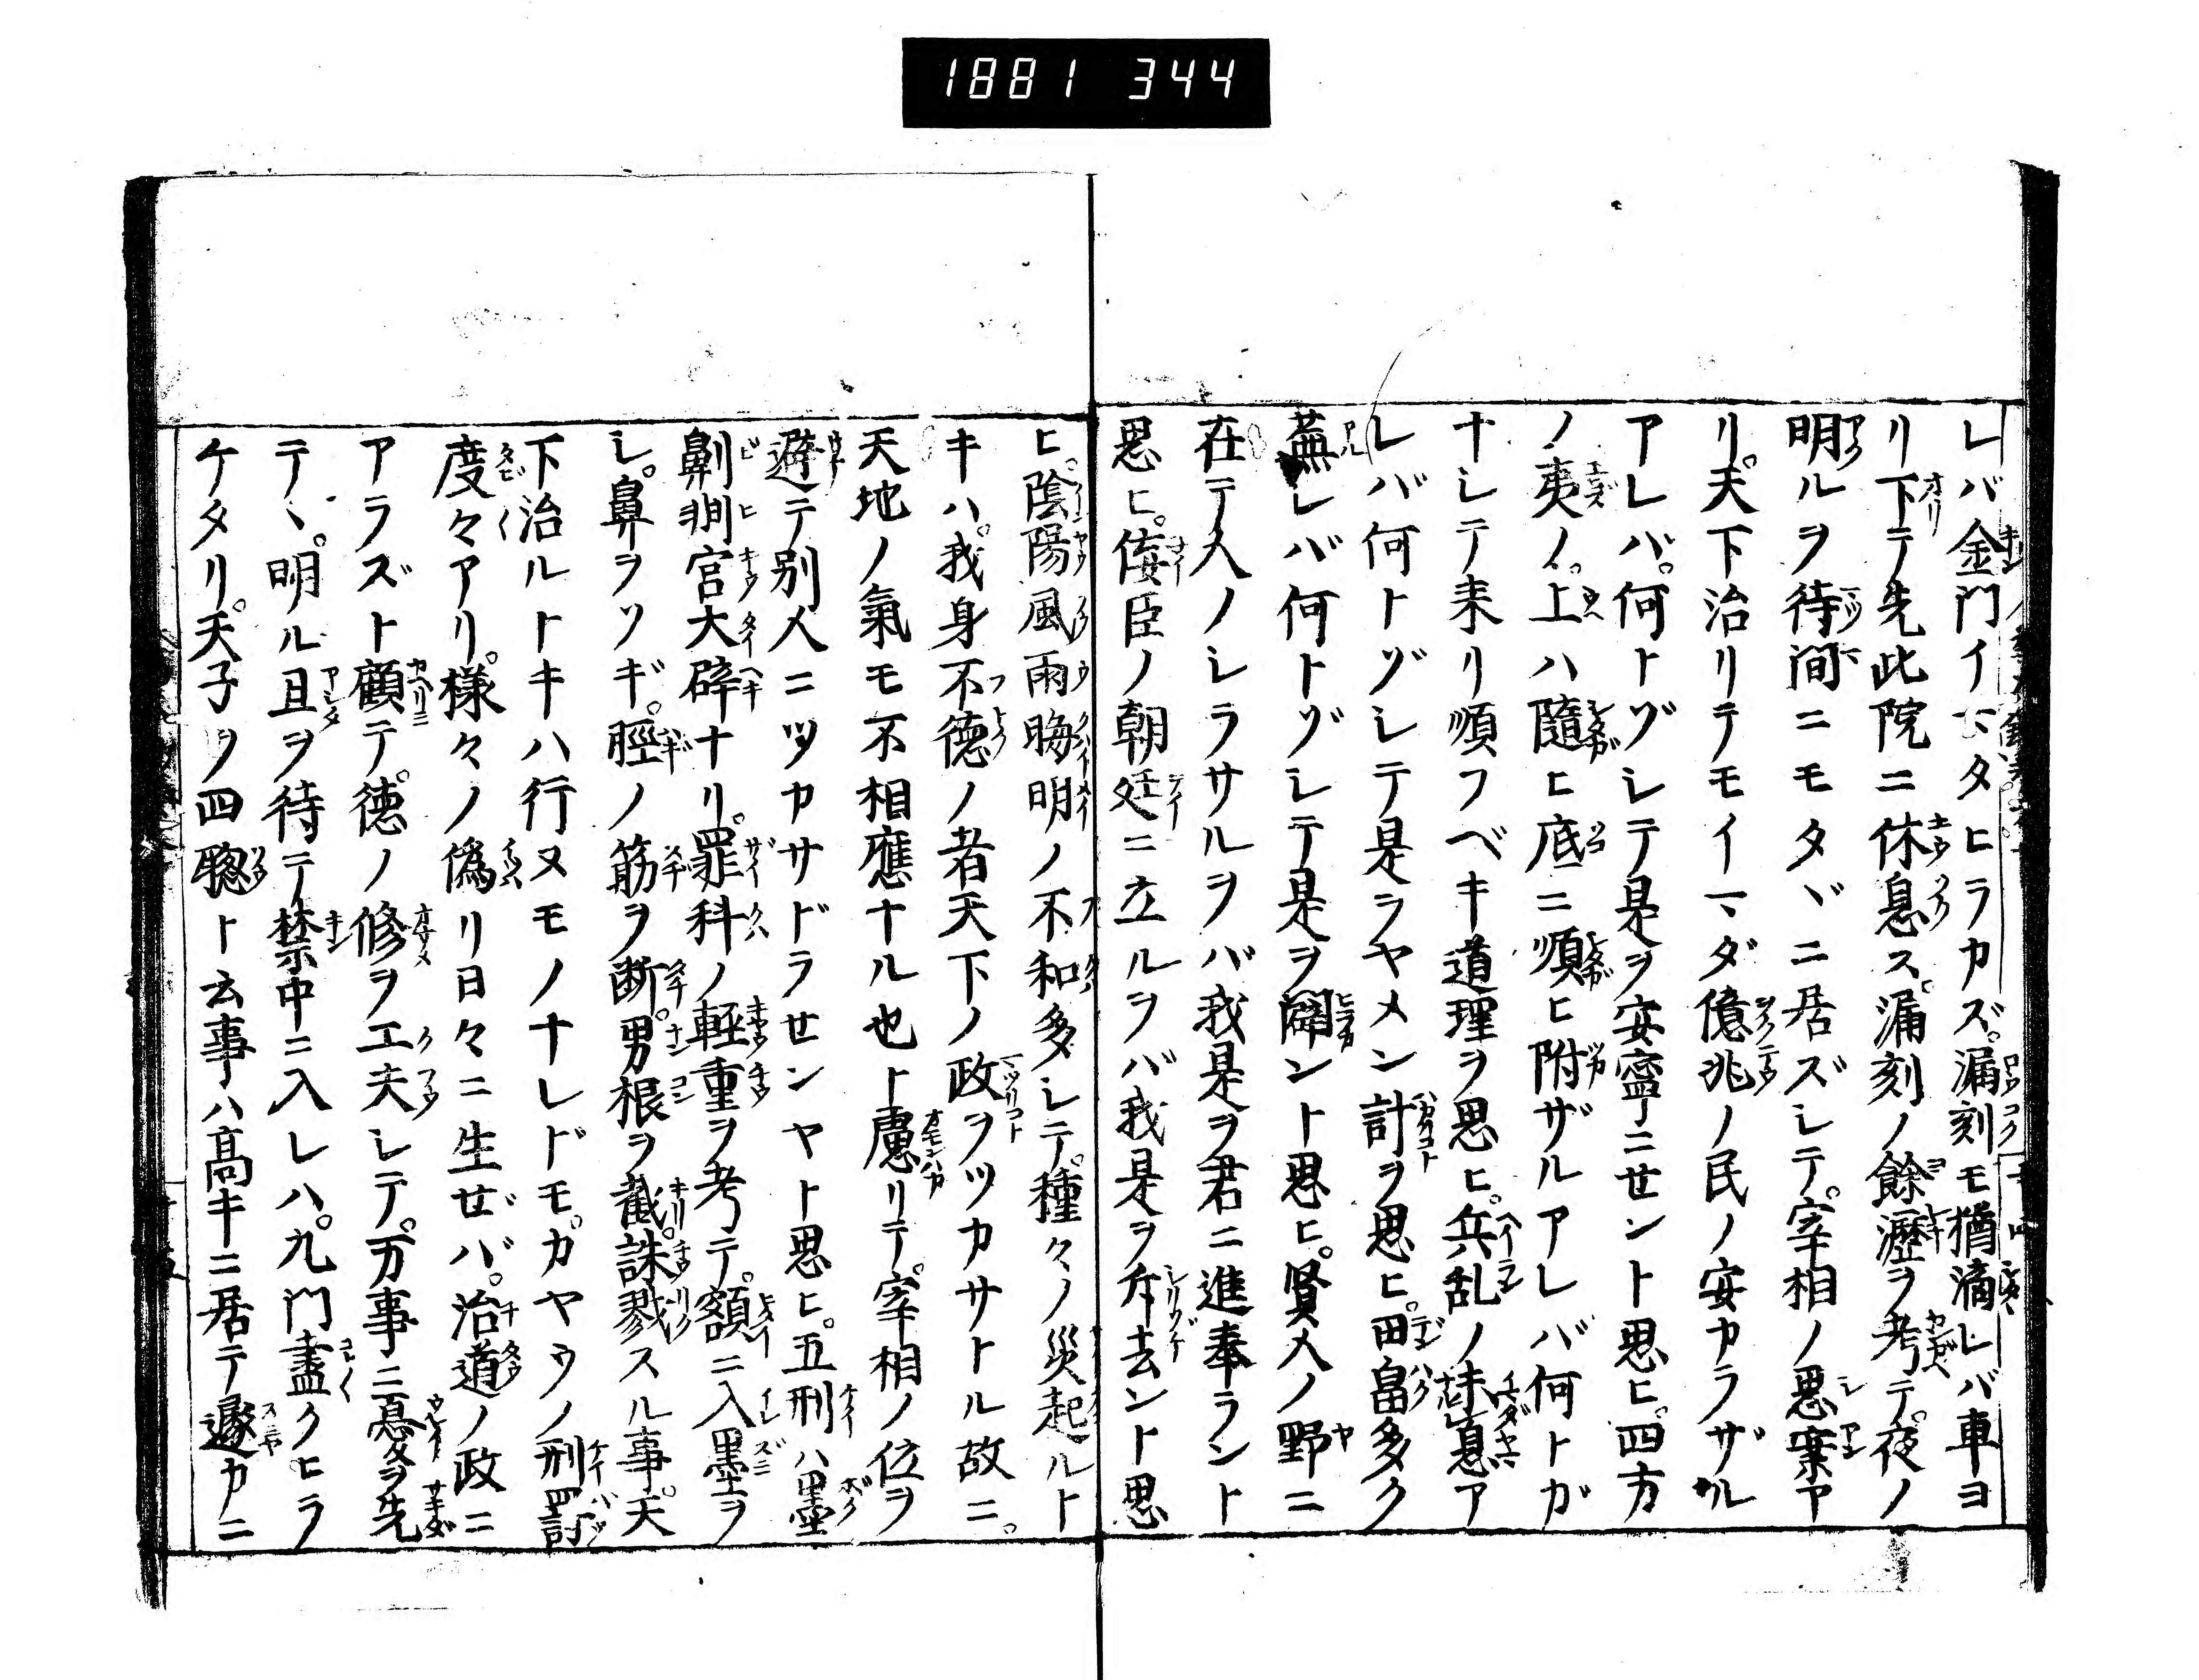 1881 344
レバ金門イマダヒラカズ。漏刻モ猶滴レバ車ヨ
リ下テ先此院ニ休息ス。漏刻ノ餘瀝ヲ考テ。夜ノ
明ルヲ待間ニモタヾニ居ズシテ。宰相ノ思案ア
リ。天下治リテモイマダ億兆ノ民ノ安カラザル
アレバ。何トゾシテ是ヲ安寧ニセント思ヒ。四方
ノ夷ノ。上ハ隨ヒ底ニ順ヒ附ザルアレバ何トガ
ナシテ来リ順フベキ道理ヲ思ヒ。兵乱ノ未息ア
レバ何トゾシテ是ラヤメン計ヲ思ヒ。田畠多ク
蕪レバ何トゾシテ是ヲ闢ント思ヒ。賢人ノ野ニ
在テ人ノシラサルヲバ我是ヲ君ニ進奉ラント
思ヒ。侫臣ノ朝廷ニ立ルヲバ我是ヲ斥去ント思
ヒ。陰陽風雨晦明ノ不和多シテ。種々ノ災起ルト
キハ。我身不德ノ者天下ノ政ヲツカサトル故ニ。
天地ノ氣モ不相應ナル也ト慮リテ。宰相ノ位ヲ
避テ別人ニツカサドラセンヤト思ヒ。五刑ハ墨
劓剕宮大辟ナリ。罪科ノ軽重ヲ考テ。額ニ入墨ヲ
シ。鼻ヲソギ。脛ノ筋ヲ断。男根ヲ截。誅戮スル事。天
下治ルトキハ行ヌモノナレドモ。カヤウノ刑罰
度々アリ。様々ノ偽リ日々ニ生ゼバ。治道ノ政ニ
アラズト顧テ。徳ノ修ヲ工夫シテ。万事ニ憂ヲ先
テヽ。明ル且ヲ待テ禁中ニ入レハ。九門盡クヒラ
ケタリ。天子ヲ四聰ト云事ハ高キニ居テ遽カニ